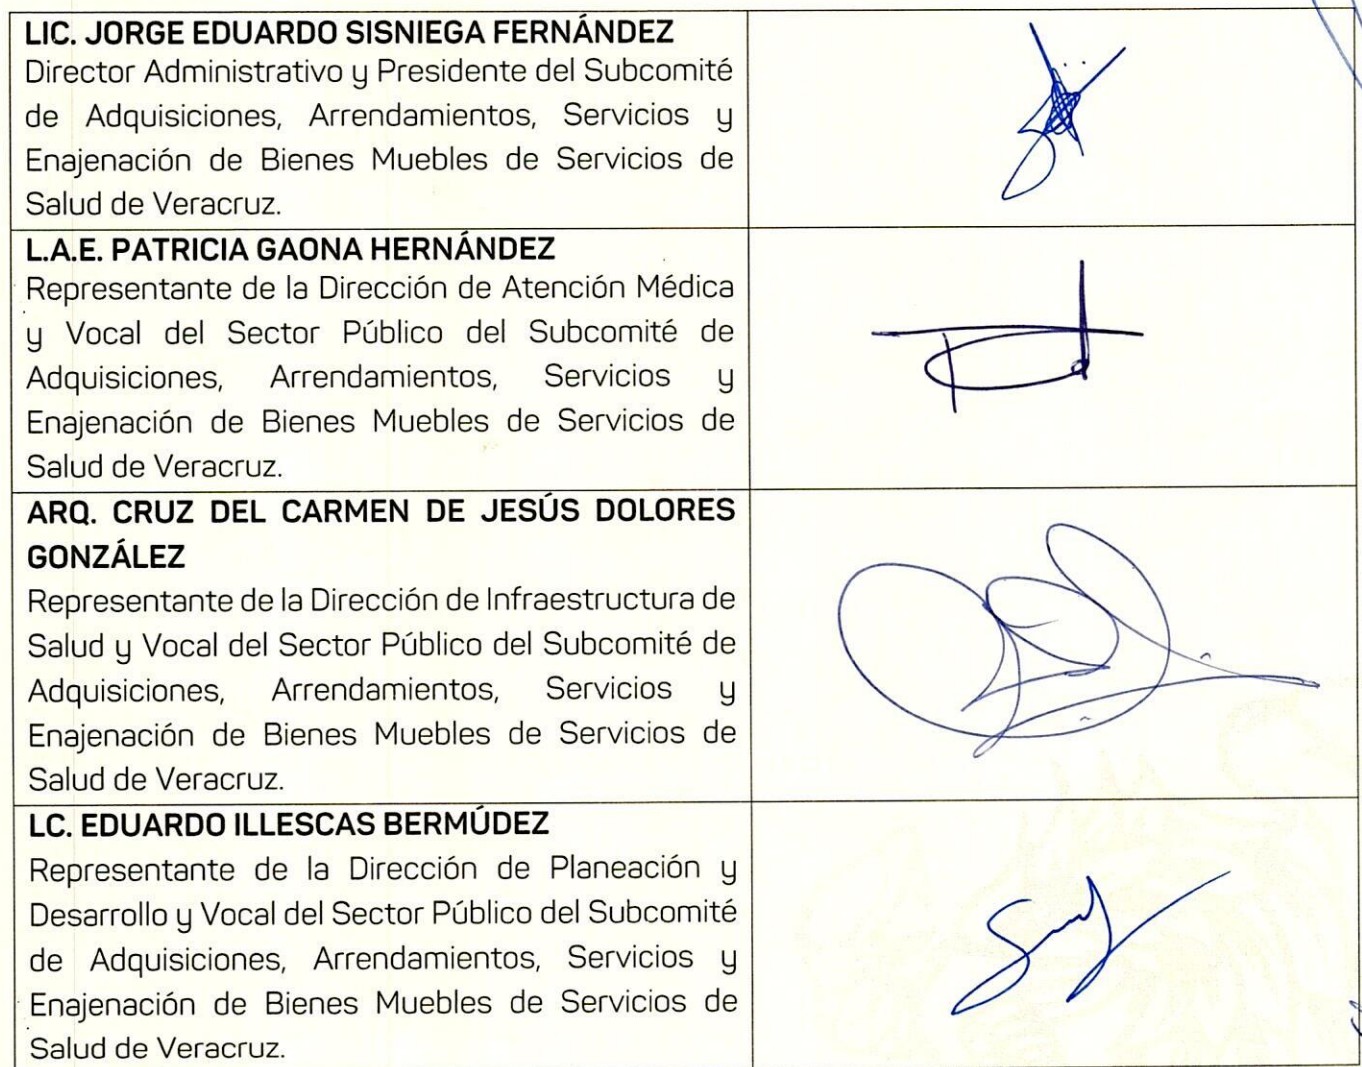 LIC. JORGE EDUARDO SISNIEGA FERNÁNDEZ
Director Administrativo y Presidente del Subcomité
de Adquisiciones, Arrendamientos, Servicios y
Enajenación de Bienes Muebles de Servicios de
Salud de Veracruz.
L.A.E. PATRICIA GAONA HERNÁNDEZ
Representante de la Dirección de Atención Médica
y Vocal del Sector Público del Subcomité de
Adquisiciones, Arrendamientos, Servicios y
Enajenación de Bienes Muebles de Servicios de
Salud de Veracruz.
ARQ. CRUZ DEL CARMEN DE JESÚS DOLORES
GONZÁLEZ
Representante de la Dirección de Infraestructura de
Salud y Vocal del Sector Público del Subcomité de
Adquisiciones, Arrendamientos, Servicios y
Enajenación de Bienes Muebles de Servicios de
Salud de Veracruz.
LC. EDUARDO ILLESCAS BERMÚDEZ
Representante de la Dirección de Planeación y
Desarrollo y Vocal del Sector Público del Subcomité
de Adquisiciones, Arrendamientos, Servicios y
Enajenación de Bienes Muebles de Servicios de
Salud de Veracruz.